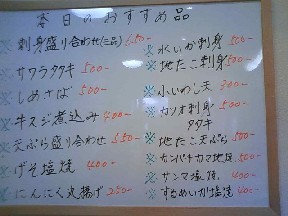 本日のおすすめ品
※刺身盛り合わせ(三品) 650-
※サワラタタキ 500-
※しめさば 500-
※牛スジ煮込み 400-
※天ぷら盛り合わせ 550-
※げそ塩焼 400-
※にんにく丸揚げ 250-
※水いか刺身 500-
※地たこ刺身 500-
※小いわし天 300-
※カツオ刺身 500-
タタキ
※地たこ天ぷら 500-
※カンパチカマ地焼 500-
※サンマ塩焼 400-
※するめいか塩焼 400-